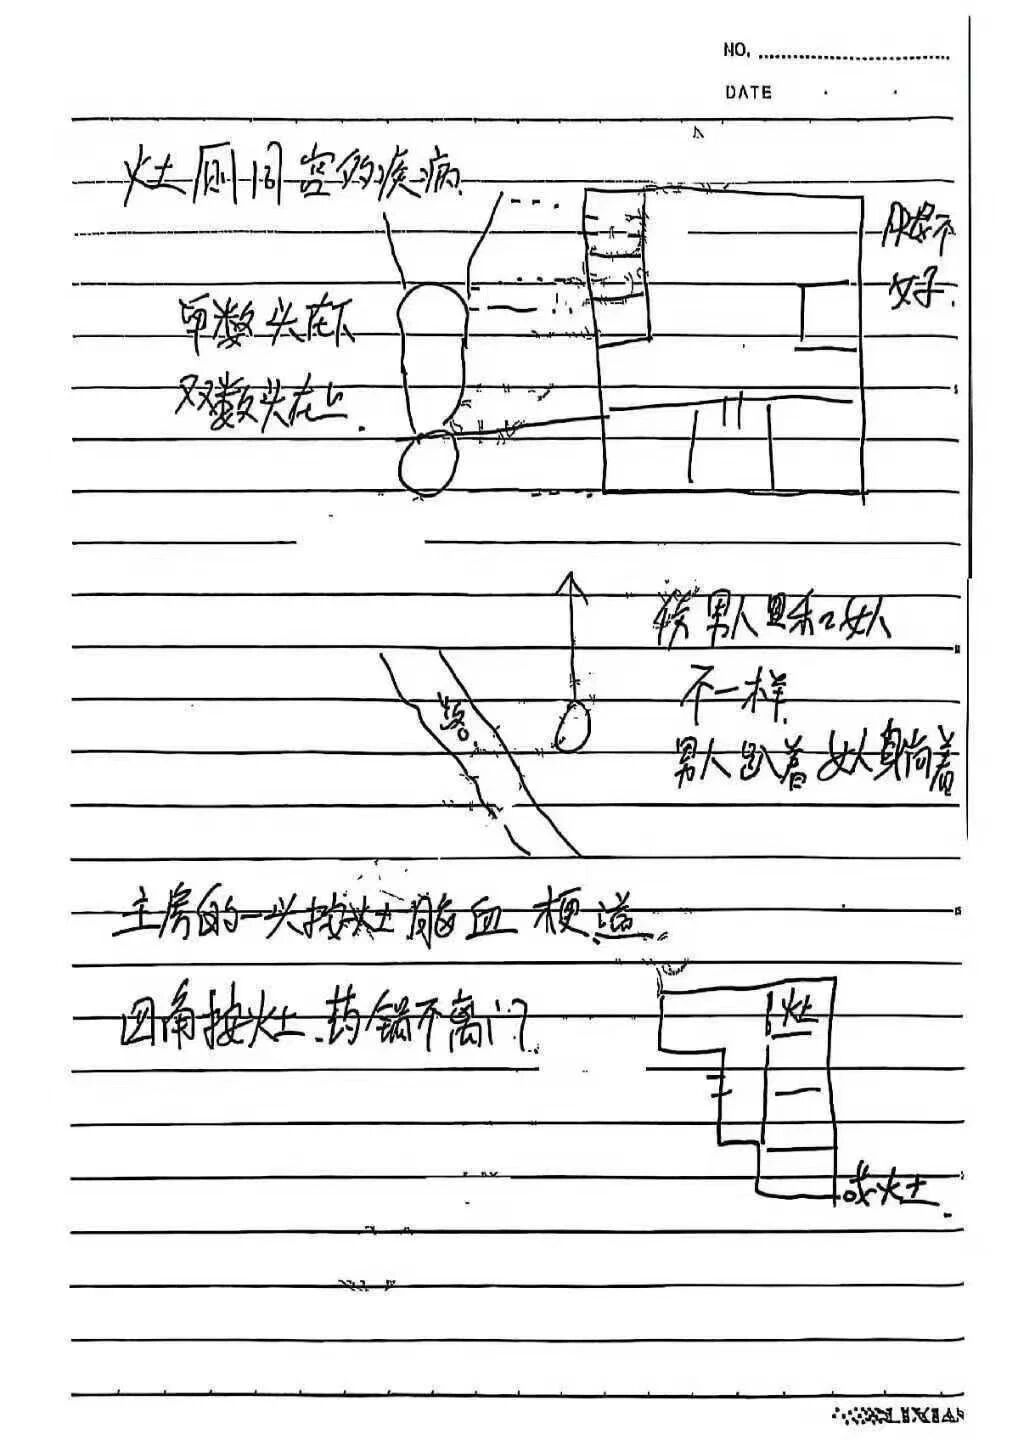 NO.
DATE
灶厕同宫的疾病.
单数头在下
双数头在上.
腿不
好.
男人 和女人
不一样.
男人趴着 女人身尚着
路。
主房的一头按灶 脑血梗溢
四角按灶.药锅不离门.
灶
或灶.